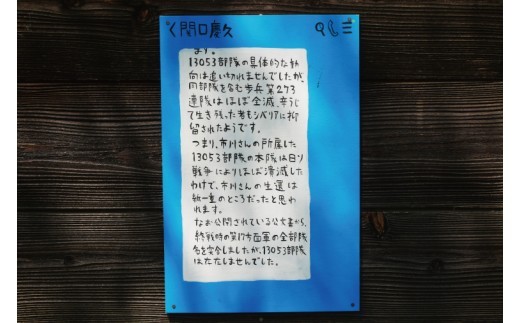 く関口慶久
より。
13053部隊の具体的な動
向は追い切れませんでしたが、
同部隊を含む歩兵第273
連隊はほぼ全滅、辛うじ
て生き残った者もシベリアに抑
留されたようです。
つまり、市川さんの所属した
13053部隊の本隊は日ソ
戦争によりほぼ潰滅した
わけで、市川さんの生還は
紙一重のところだったと思わ
れます。
なお公開されている公文書から、
終戦時の第17方面軍の全部隊
名を突合しましたが、13053部隊
はたたしませんでした。